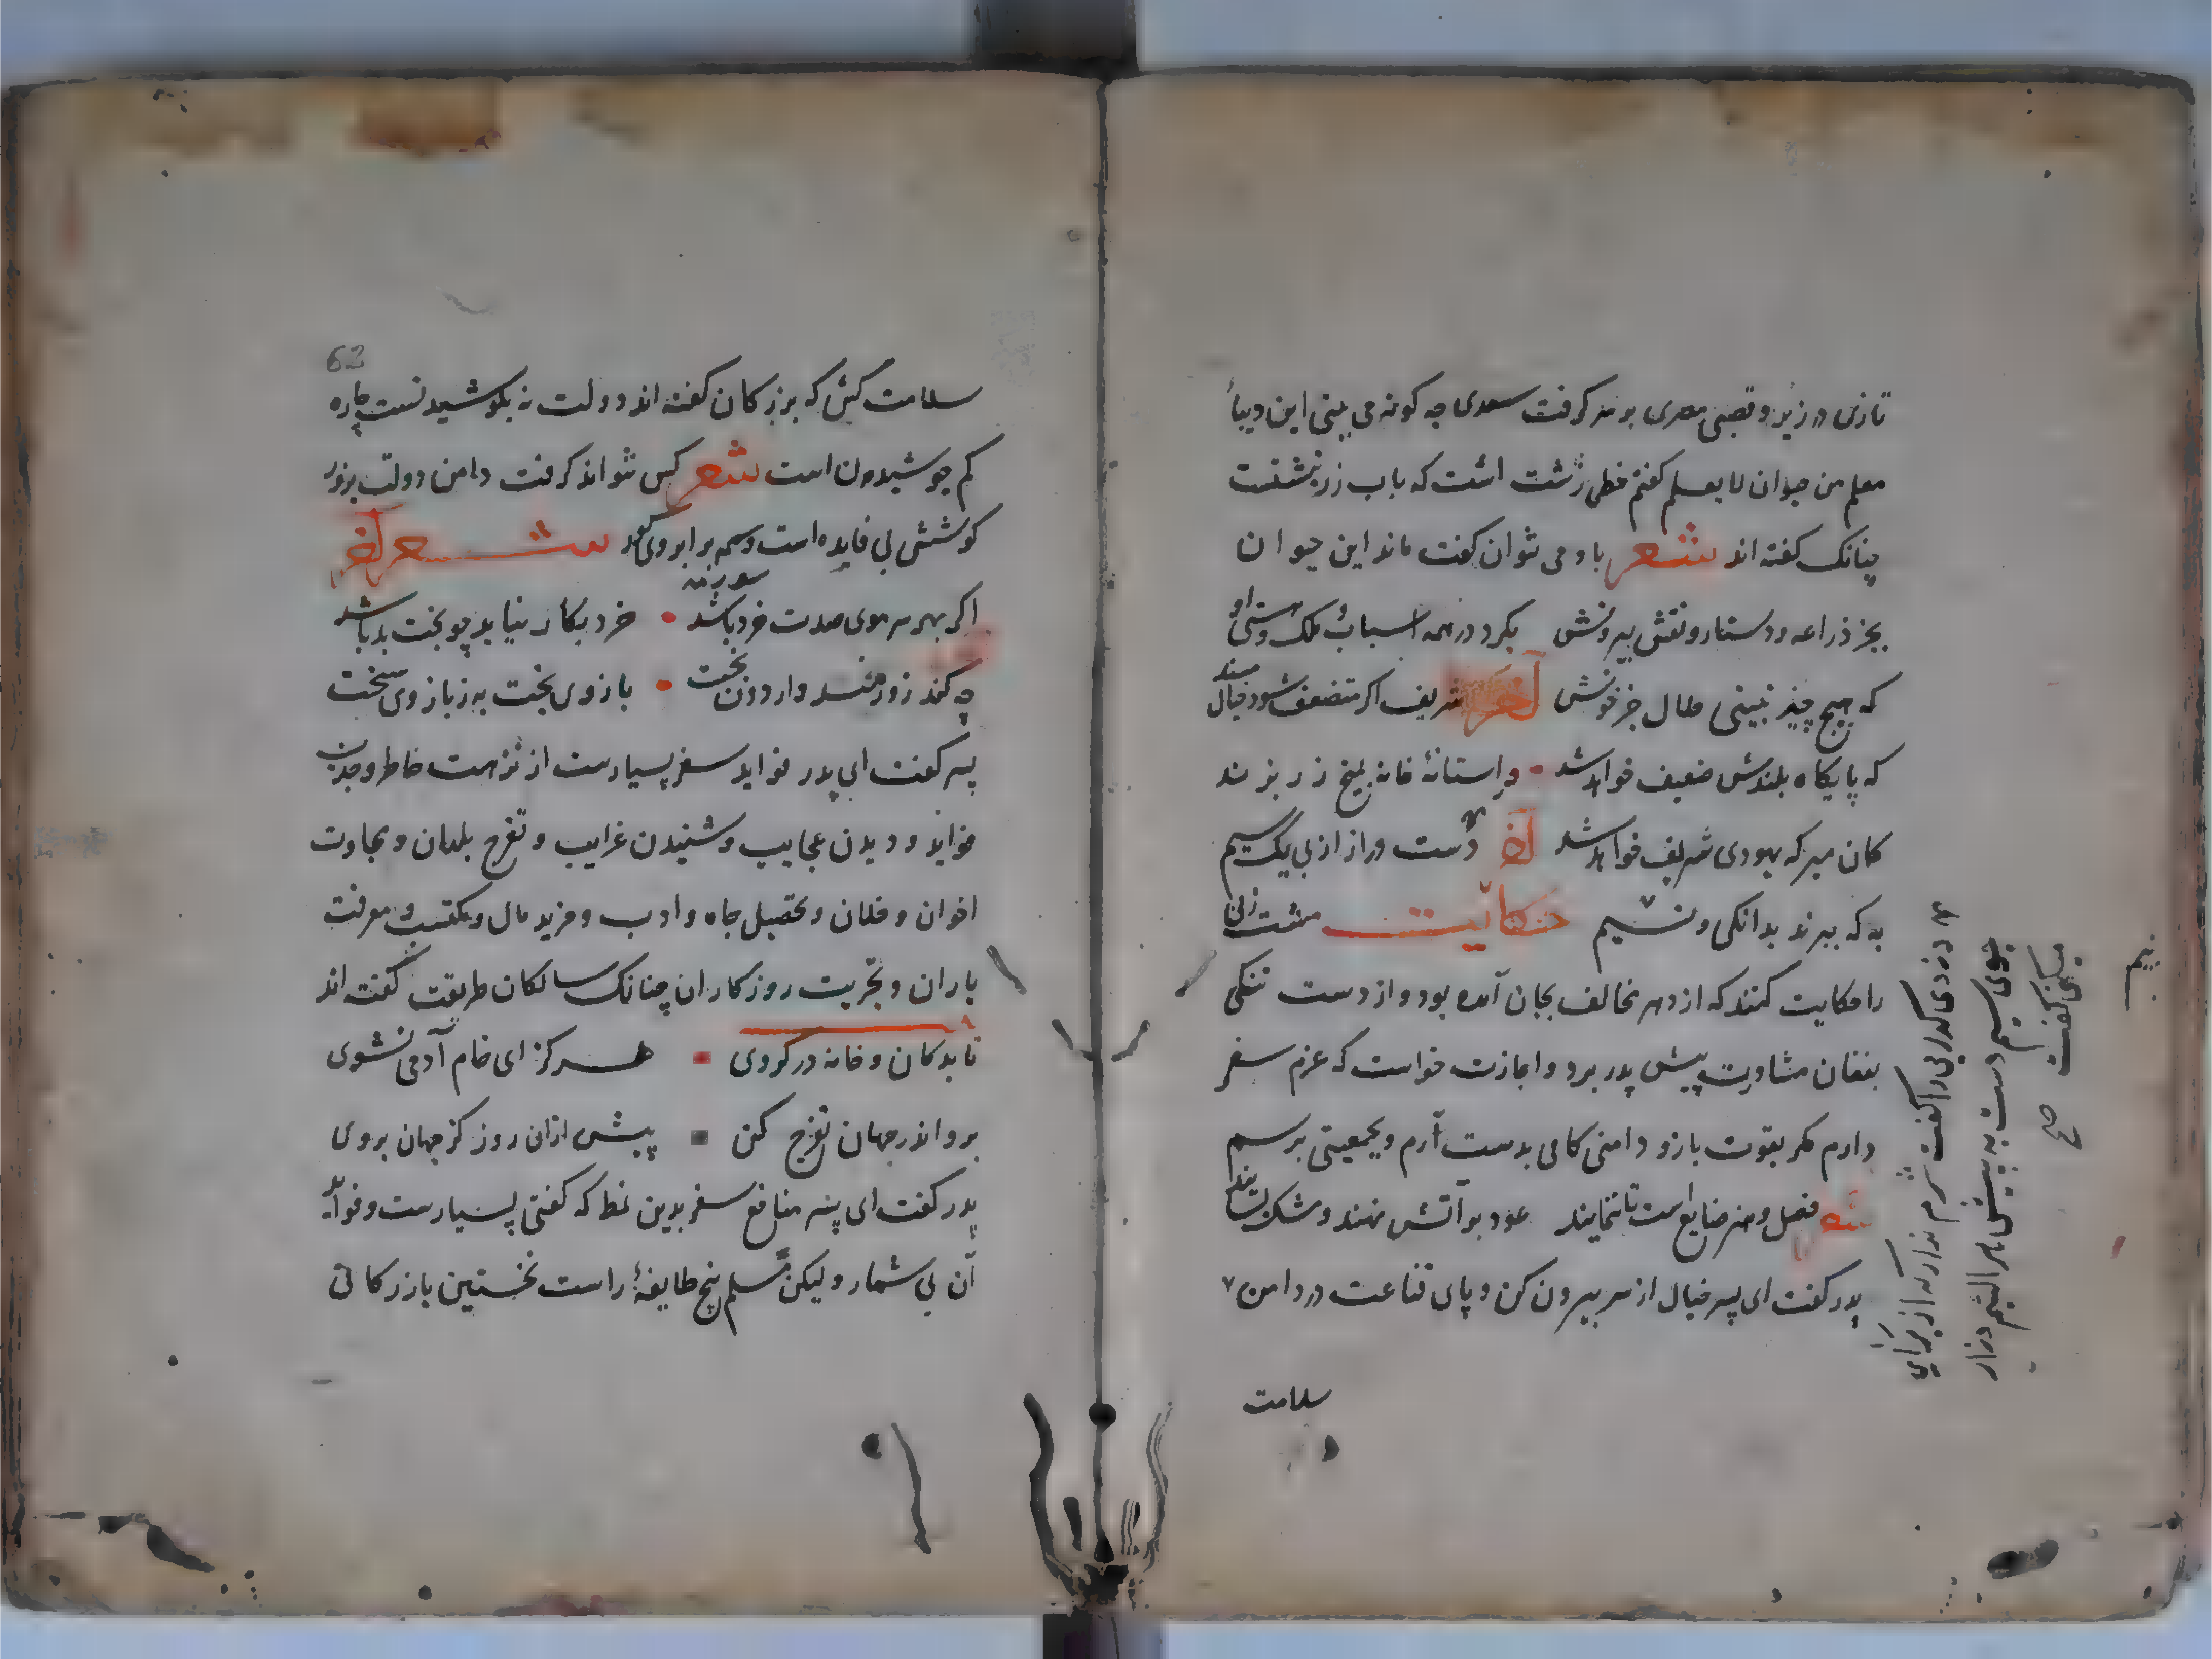 تازی در زیر و قصبی مصری بر سر کرفت سعدی چه کونه می بینی این دیبا
معلم من حیوان لا یعلم کفتم خطی زشت است که باب زر نبشتست
چنانک کفته اند شعر بادمی نتوان کفت ماند این حیوان
بجز ذراعه و دستار و نقش بیرونش بکرد در همه اسباب ملک و هستی او
که هیچ چیز نبینی حلال جز خونش آخر شریف اکر متضعف شود خیال مبند
که پایکاه بلندش ضعیف خواهد شد ور استانهٔ خانه بمیخ زر بزند
کان مبر که یهودی شریف خواهد شد آخر دست دراز از پی یک سیم
به که ببرند بدانکی و نیم حکایت مشت زنی
را حکایت کنند که از دهر مخالف بجان آمده بود و از دست تنکی
بفغان مشاورت پیش پدر برد و اجازت خواست که عزم سفر
دارم مکر بقوت بازو دامنی کامی بدست آرم و بجمعیتی برسم
فضل و هنر ضایع است تا ننمایند عود بر آتش نهند و مشک بسایند
پدر کفت ای پسر خیال از سر بیرون کن و پای قناعت در دامن
سلامت
دزدی کدایی را کفت شرم نداری که از برای
جوی سیم دست به پیش هر لئیم دراز
میکنی کفت صح
نیم
62
سلامت کش که بزرکان کفته اند دولت نه بکوشیدنست چاره
کم جوشیدن است شعر کس نتواند کرفت دامن دولت بزور
کوشش بی فایده است وسمه بر ابروی کور شعر آخر
اکر بهر سر موی صدت خرد باشد خرد بکار نیاید چو بخت بد باشد
چه کند زورمند وارون بخت بازوی بخت به ز بازوی سخت
پسر کفت ای پدر فواید سفر بسیارست از نزهت خاطر و جذب
فواید و دیدن عجایب و شنیدن غرایب و تفرج بلدان و مجاورت
اخوان و خلان و تحصیل جاه و ادب و مزید مال و مکتسب و معرفت
یاران و تجربت روزکاران چنانک سالکان طریقت کفته اند
تا بدکان و خانه در کروی هرکز ای خام آدمی نشوی
برو اندر جهان تفرج کن پیش ازان روز کز جهان بروی
پدر کفت ای پسر منافع سفر بدین نمط که کفتی بسیارست و فواید
آن بی شمار و لیکن مسلم پنج طایفهٔ راست نخستین بازرکانی